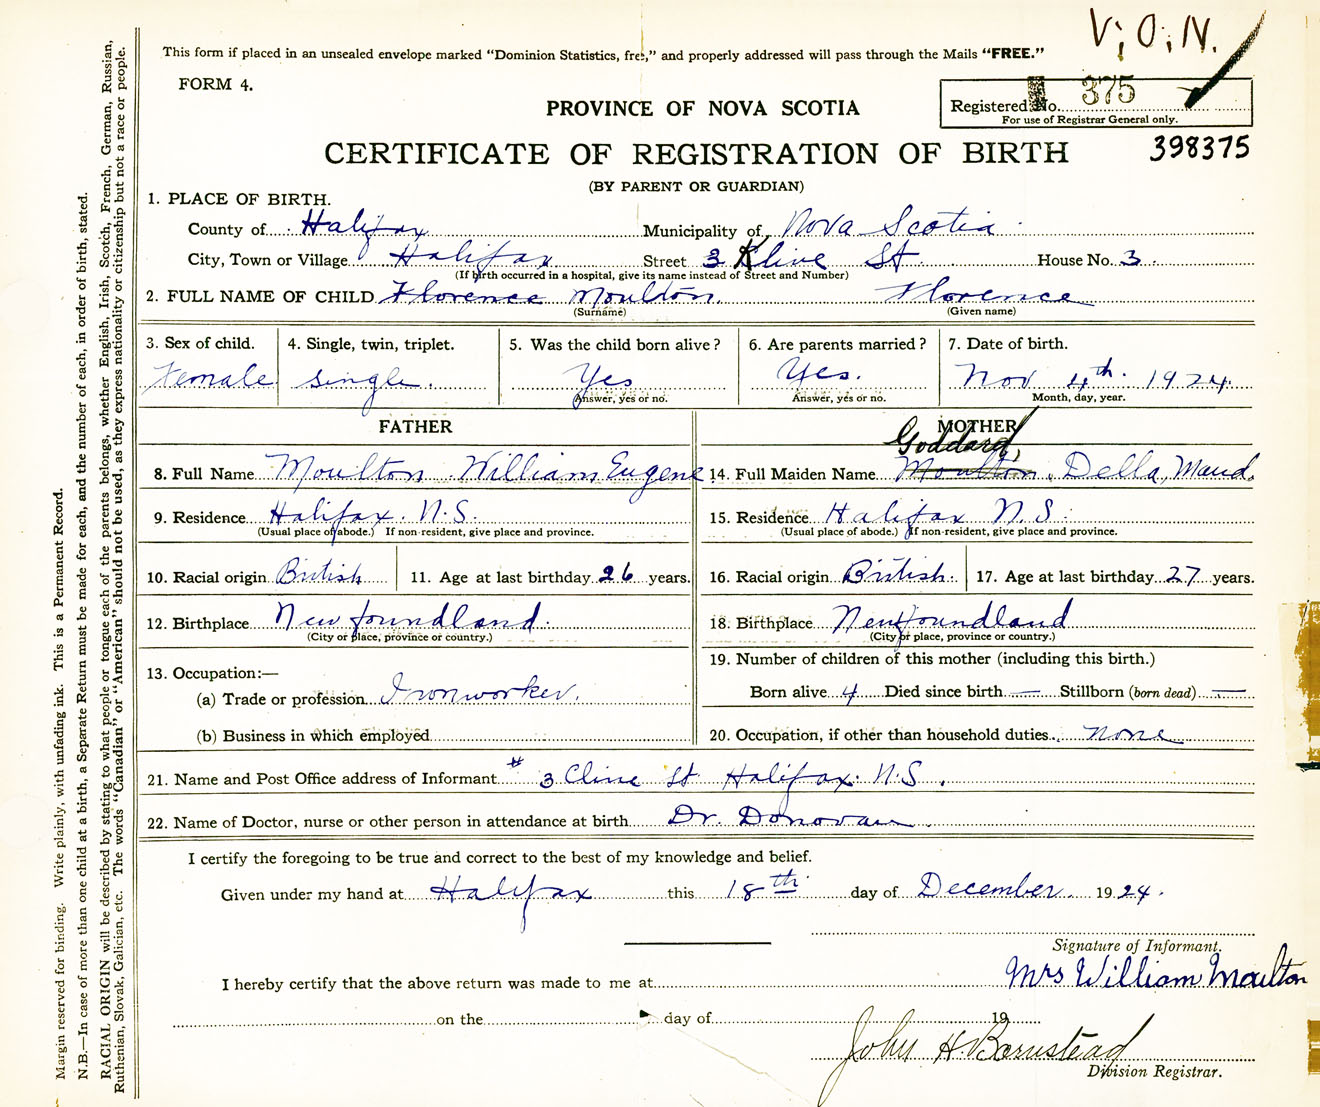 V; O; N.
This form if placed in an unsealed envelope marked "Dominion Statistics, free," and properly addressed will pass through the Mails "FREE."
FORM 4.
Registered No. 375
For use of Registrar General only.
PROVINCE OF NOVA SCOTIA
CERTIFICATE OF REGISTRATION OF BIRTH 398375
(BY PARENT OR GUARDIAN)
1. PLACE OF BIRTH.
County of Halifax Municipality of Nova Scotia
City, Town or Village Halifax Street 3 Klive St House No. 3
(If birth occurred in a hospital, give its name instead of Street and Number)
2. FULL NAME OF CHILD Florence Moulton Florence
(Surname) (Given name)
3. Sex of child. 4. Single, twin, triplet. 5. Was the child born alive? 6. Are parents married? 7. Date of birth.
Female single. Yes Yes. Nov 4th 1924
Answer, yes or no. Answer, yes or no. Month, day, year.
FATHER MOTHER
Goddard,
8. Full Name Moulton William Eugene 14. Full Maiden Name Moulton, Della, Maud.
9. Residence Halifax. N.S. 15. Residence Halifax N.S.
(Usual place of abode.) If non-resident, give place and province. (Usual place of abode.) If non-resident, give place and province.
10. Racial origin British 11. Age at last birthday 26 years. 16. Racial origin British. 17. Age at last birthday 27 years.
12. Birthplace Newfoundland. 18. Birthplace Newfoundland
(City or place, province or country.) (City or place, province or country.)
13. Occupation:— 19. Number of children of this mother (including this birth.)
(a) Trade or profession Ironworker. Born alive 4 Died since birth — Stillborn (born dead) —
(b) Business in which employed 20. Occupation, if other than household duties. none
21. Name and Post Office address of Informant # 3 Cline St Halifax. N.S.
22. Name of Doctor, nurse or other person in attendance at birth Dr. Donovan
I certify the foregoing to be true and correct to the best of my knowledge and belief.
Given under my hand at Halifax this 18th day of December 1924.
Signature of Informant.
Mrs William Moulton
I hereby certify that the above return was made to me at
on the day of 19
John H. Barnstead
Division Registrar.
Margin reserved for binding. Write plainly, with unfading ink. This is a Permanent Record.
N.B.—In case of more than one child at a birth, a Separate Return must be made for each, and the number of each, in order of birth, stated.
RACIAL ORIGIN will be described by stating to what people or tongue each of the parents belongs, whether English, Irish, Scotch, French, German, Russian,
Ruthenian, Slovak, Galician, etc. The words "Canadian" or "American" should not be used, as they express nationality or citizenship but not a race or people.